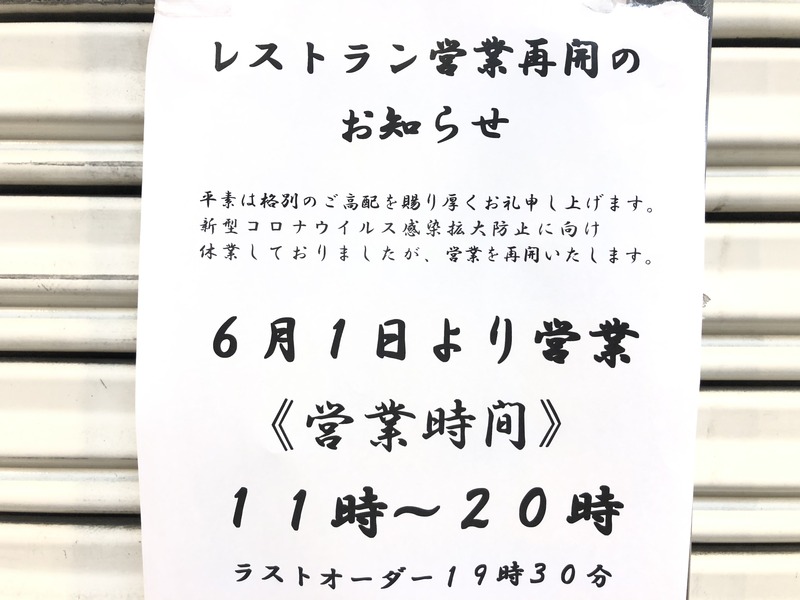 レストラン営業再開の
お知らせ
平素は格別のご高配を賜り厚くお礼申し上げます。
新型コロナウイルス感染拡大防止に向け
休業しておりましたが、営業を再開いたします。
6月1日より営業
《営業時間》
11時～20時
ラストオーダー19時30分